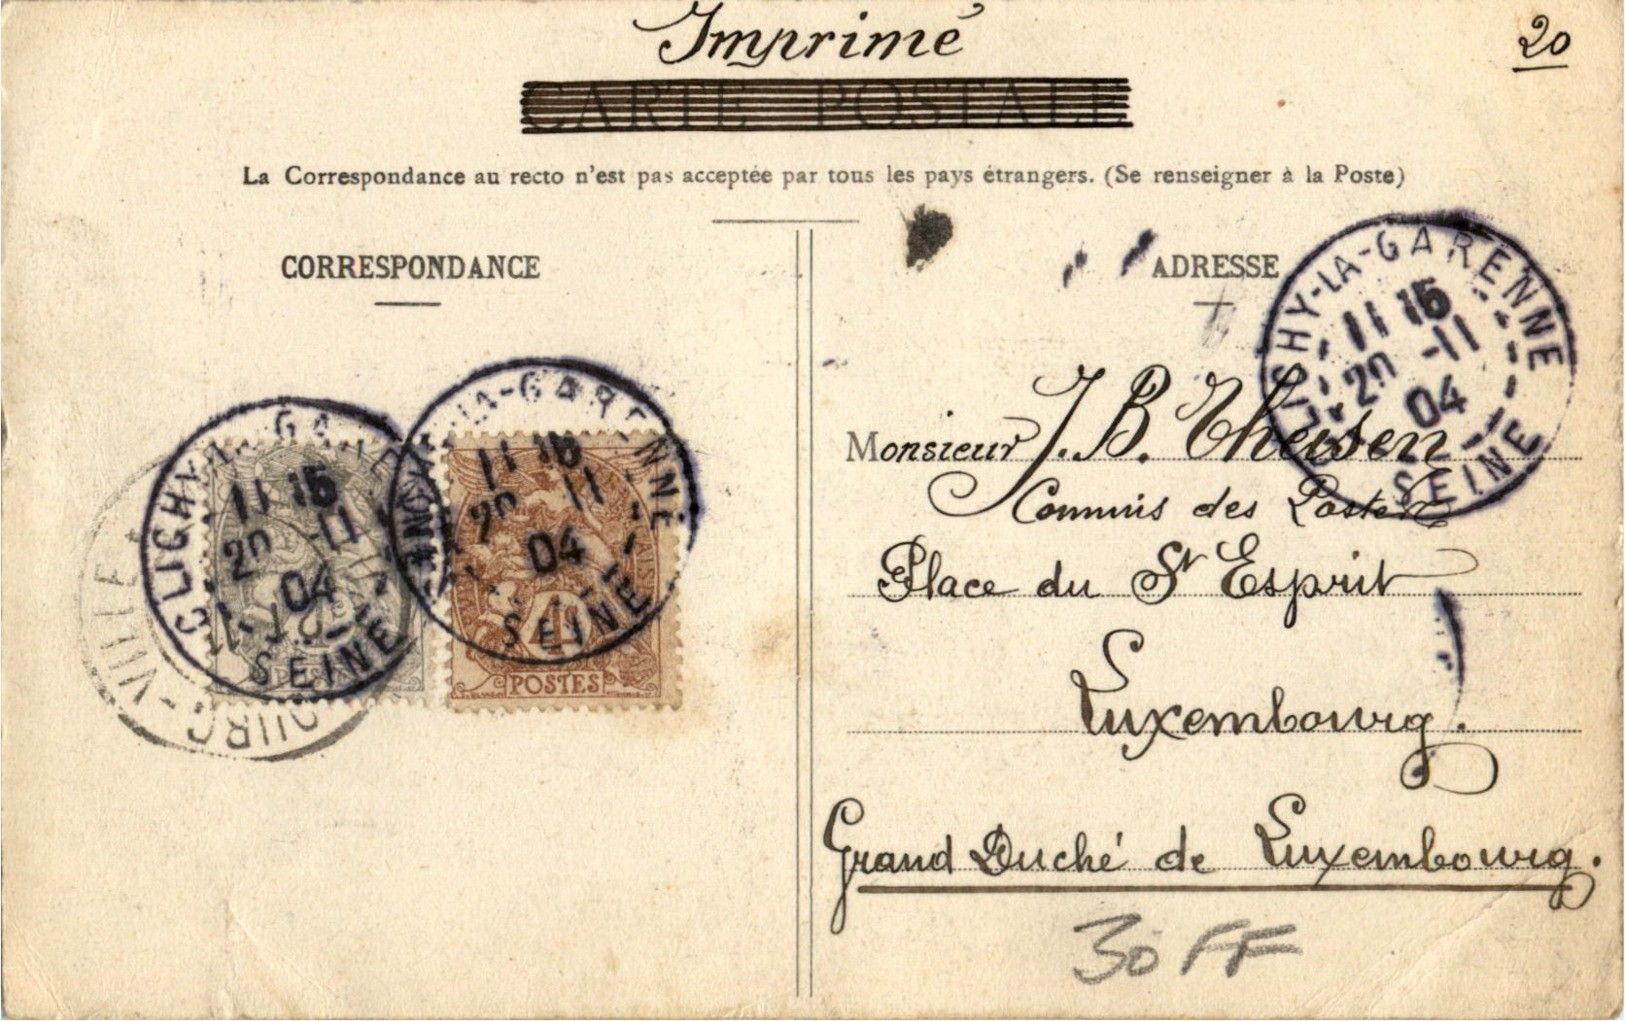 Imprimé
20
CARTE POSTALE
La Correspondance au recto n'est pas acceptée par tous les pays étrangers. (Se renseigner à la Poste)
CORRESPONDANCE
ADRESSE
CLICHY-LA-GARENNE
11 15
20 -11
04
SEINE
CLICHY-LA-GARENNE
11 15
20 -11
04
SEINE
LA-GARENNE
11 15
20 11
04
SEINE
POSTES
OURG-VILLE
Monsieur J. B. Theisen
Commis des Postes
Place du St Esprit
Luxembourg.
Grand Duché de Luxembourg.
30 FF